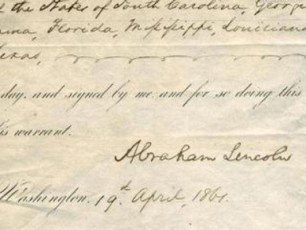 the States of South Carolina, Georg
ama, Florida, Mississippi, Louisiana
Texas,
day, and signed by me and for so doing this
his warrant.
Abraham Lincoln
Washington. 19th April, 1861.